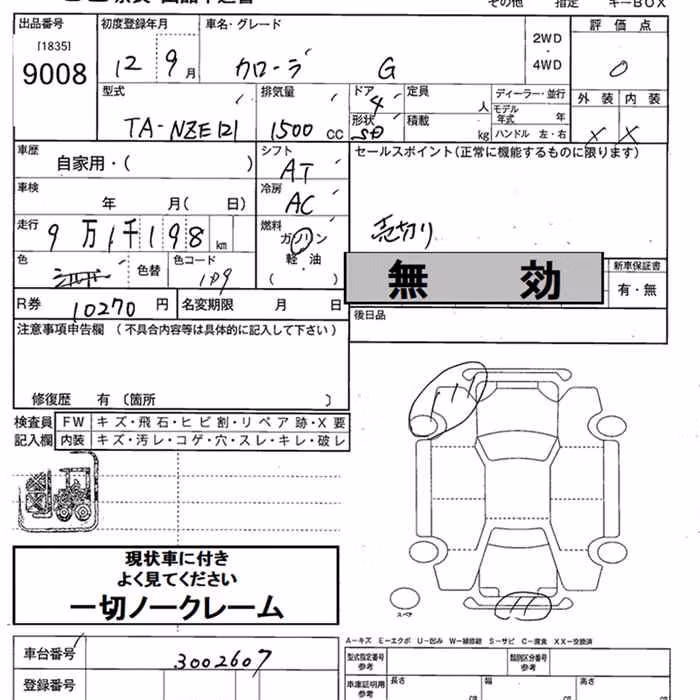 その他 指定 キーBOX
出品番号 初度登録年月 車名・グレード 評価点
[1835]
9008
12 9月 カローラ G
2WD
・
4WD
0
型式 排気量 ドア 4 定員 人 ディーラー・並行 外装 内装
TA-NZE121 1500 cc 形状 SD 積載 kg モデル年式 年
ハンドル 左・右 X X
車歴 シフト セールスポイント(正常に機能するものに限ります)
自家用・( ) AT
車検 冷房
年 月( 日) AC
走行 燃料 売切り
9万1千198km ガソリン
軽・油
( )
色 色替 色コード 無 効 新車保証書
シルバー 199 有・無
R券 10270 円 名変期限 月 日
後日品
注意事項申告欄 (不具合内容等は具体的に記入して下さい)
修復歴 有 〔箇所 〕
検査員 FW キズ・飛石・ヒビ割・リペア跡・X要
記入欄 内装 キズ・汚レ・コゲ・穴・スレ・キレ・破レ
現状車に付き
よく見てください
一切ノークレーム
スペア
A-キズ E-エクボ U-凹み W-補修跡 S-サビ C-腐食 XX-交換済
車台番号 3002607
型式指定番号 参考 類別区分番号 参考
登録番号
車庫証明用 参考 長さ cm 幅 cm 高さ cm